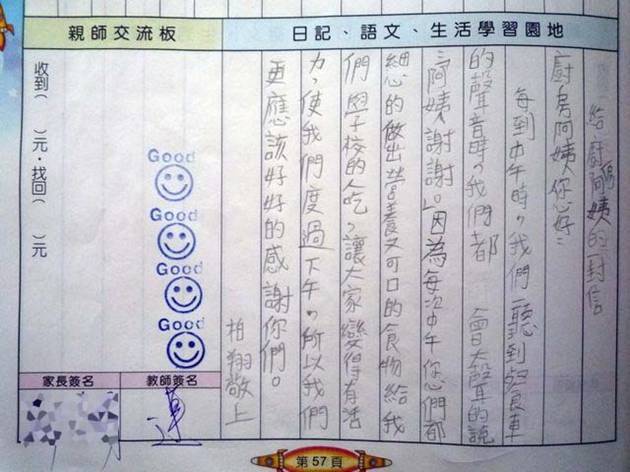 親師交流板
日記、語文、生活學習園地
給廚房阿姨的一封信
廚房阿姨你好：
每到中午時，我們聽到餐車
的聲音時，我們都 會大聲的說
「阿姨謝謝。」因為每次中午你們都
細心的做出營養又可口的食物給我
們學校的人吃，讓大家變得有活
力，使我們度過下午，所以我們
更應該好好的感謝你們。
柏翔敬上
收到（ ）元，找回（ ）元
Good
Good
Good
Good
家長簽名
教師簽名
第57頁